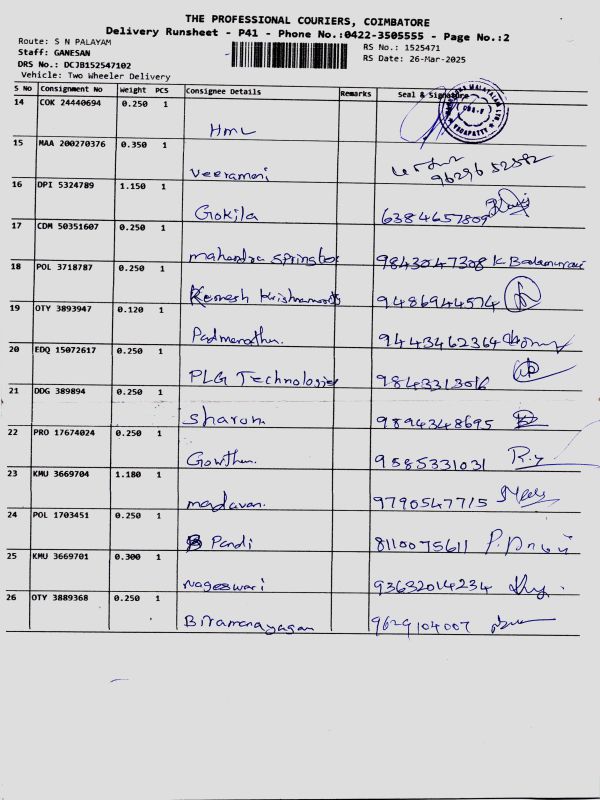 THE PROFESSIONAL COURIERS, COIMBATORE
Delivery Runsheet - P41 - Phone No.:0422-3505555 - Page No.:2
Route: S N PALAYAM
Staff: GANESAN
DRS No.: DCJB152547102
Vehicle: Two Wheeler Delivery
RS No.: 1525471
RS Date: 26-Mar-2025
S No Consignment No Weight PCS Consignee Details Remarks Seal & Signature
14 COK 24440694 0.250 1 HML
15 MAA 200270376 0.350 1 Veeramani 96296 52582
16 DPI 5324789 1.150 1 Gokila 6384657809
17 CDM 50351607 0.250 1 mahendra springtec 9843047308 K Balamurali
18 POL 3718787 0.250 1 Krishnamoorthy 9486944574
19 OTY 3893947 0.120 1 9443462364
20 EDQ 15072617 0.250 1 PLG Technologies 9843313016
21 DDG 389894 0.250 1 Sharom 9894348695
22 PRO 17674024 0.250 1 Gowthm. 9585331031 R.y
23 KMU 3669704 1.180 1 madavan. 9790547715
24 POL 1703451 0.250 1 Pandi 8110075611
25 KMU 3669701 0.300 1 Nageswari 93632014234
26 OTY 3889368 0.250 1 9629104007